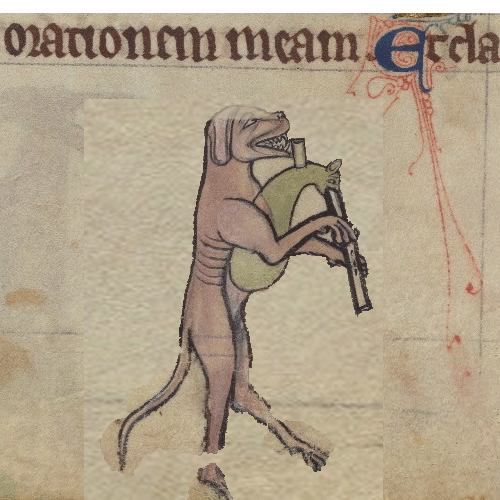 orationem meam Et cla